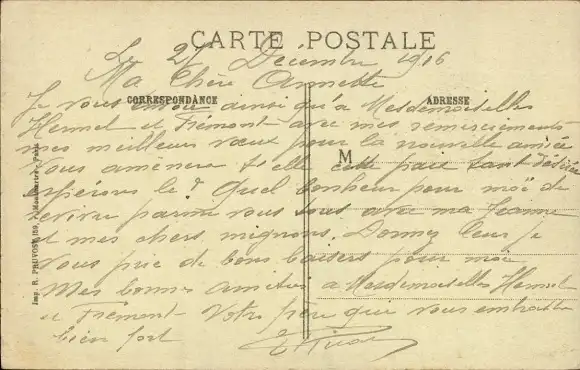 CARTE POSTALE
Le 27 Décembre 1916
Ma Chère Annette
CORRESPONDANCE
ADRESSE
Je vous envoie ainsi qu'a Mesdemoiselles
Hermel et Frémont avec mes remerciements
mes meilleurs vœux pour la nouvelle année
M
Vous amènera t elle cette paix tant désirée
espérons le ? Quel bonheur pour moi de
revivre parmi vous tous avec ma Jeanne
et mes chers mignons, Donnez leur je
vous prie de bons baisers pour moi
Mes bonnes amitiés a Mesdemoiselles Hermel
et Frémont Votre frère que vous embrasse
bien fort
Imp. R. PRUVOST, 159, r. Montmartre, Paris